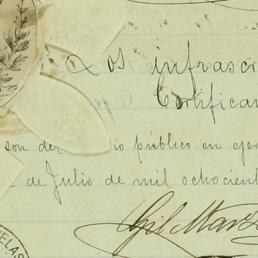 Los infrascr
Certifican
son de io público en ejer
de Julio de mil ochocient
Gil Marz
ELAS